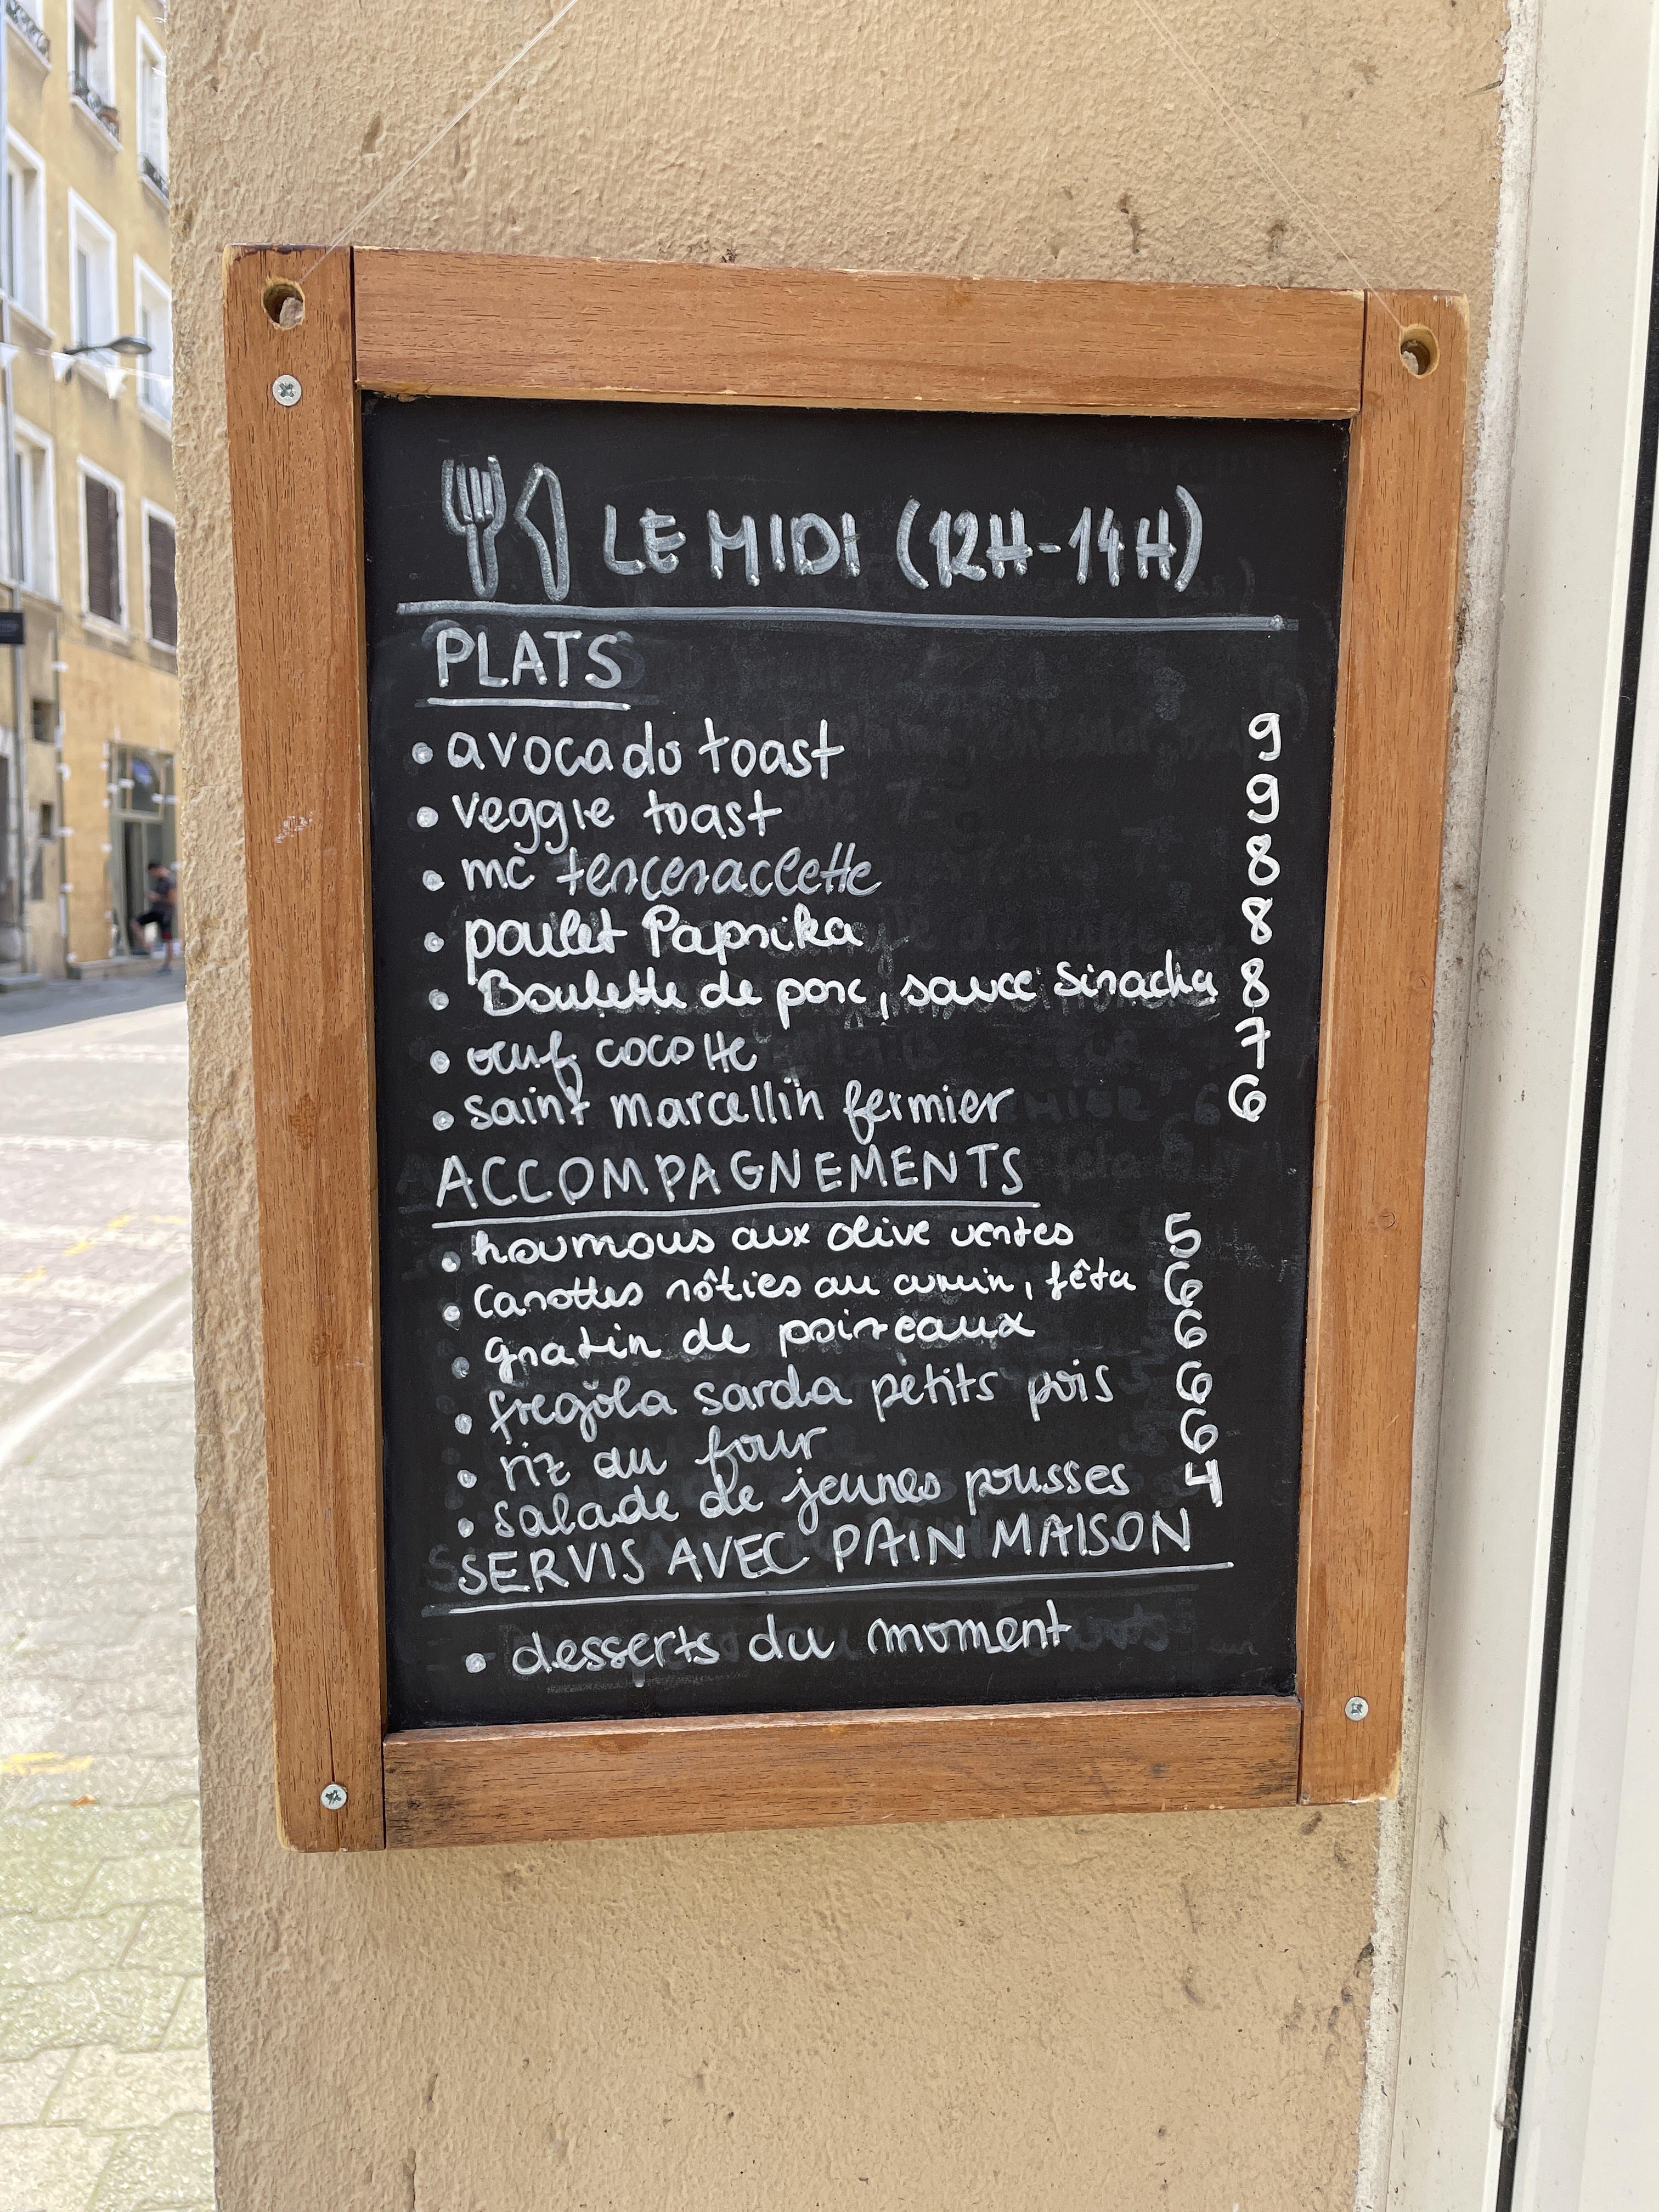 LE MIDI (12H-14H)
PLATS
• avocado toast 9
• veggie toast 9
• mc terceraclette 8
• poulet Paprika 8
• Boulette de porc, sauce Siracha 8
• œuf cocotte 7
• saint marcellin fermier 6
ACCOMPAGNEMENTS
• houmous aux olive vertes 5
• Carottes rôties au cumin, fêta 6
• gratin de poireaux 6
• fregola sarda petits pois 6
• riz au four 6
• salade de jeunes pousses 4
SERVIS AVEC PAIN MAISON
• desserts du moment